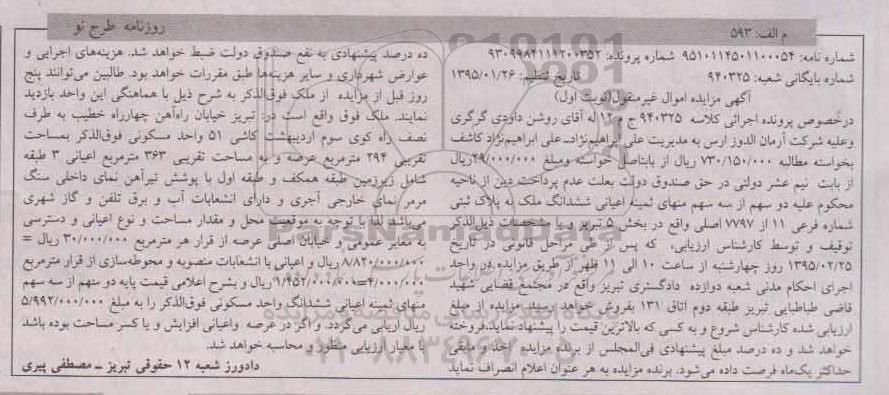 م الف: ۵۹۳
روزنامه طرح نو
شماره نامه: ۹۵۱۰۱۱۴۵۰۱۱۰۰۰۵۴ شماره پرونده: ۹۳۰۹۹۸۴۱۱۱۲۰۰۳۵۲
شماره بایگانی شعبه: ۹۴۰۳۲۵ تاریخ تنظیم: ۱۳۹۵/۰۱/۲۶
آگهی مزایده اموال غیرمنقول(نوبت اول)
درخصوص پرونده اجرائی کلاسه ۹۴۰۳۲۵ ج م ۱۲ له آقای روشن داودی گرگری
وعلیه شرکت آرمان الدوز ارس به مدیریت علی ابراهیم‌نژاد-علی ابراهیم‌نژاد کاشف
بخواسته مطالبه ۷۳۰/۱۵۰/۰۰۰ ریال از بابت‌اصل خواسته ومبلغ ۲۹/۰۰۰/۰۰۰ریال
از بابت نیم عشر دولتی در حق صندوق دولت بعلت عدم پرداخت دین از ناحیه
محکوم علیه دو سهم از سه سهم منهای ثمینه اعیانی ششدانگ ملک به پلاک ثبتی
شماره فرعی ۱۱ از ۷۷۹۷ اصلی واقع در بخش ۵ تبریز و با مشخصات ذیل‌الذکر
توقیف و توسط کارشناس ارزیابی، که پس از طی مراحل قانونی در تاریخ
۱۳۹۵/۰۲/۲۵ روز چهارشنبه از ساعت ۱۰ الی ۱۱ ظهر از طریق مزایده در واحد
اجرای احکام مدنی شعبه دوازده دادگستری تبریز واقع در مجتمع قضایی شهید
قاضی طباطبایی تبریز طبقه دوم اتاق ۱۳۱ بفروش خواهد رسید. مزایده از مبلغ
ارزیابی شده کارشناس شروع و به کسی که بالاترین قیمت را پیشنهاد نماید،فروخته
خواهد شد و ده درصد مبلغ پیشنهادی فی‌المجلس از برنده مزایده اخذ و مابقی
حداکثر یک‌ماه فرصت داده می‌شود. برنده مزایده به هر عنوان اعلام انصراف نماید
ده درصد پیشنهادی به نفع صندوق دولت ضبط خواهد شد. هزینه‌های اجرایی و
عوارض شهرداری و سایر هزینه‌ها طبق مقررات خواهد بود. طالبین می‌توانند پنج
روز قبل از مزایده از ملک فوق‌الذکر به شرح ذیل با هماهنگی این واحد بازدید
نمایند. ملک فوق واقع است در: تبریز خیابان راه‌آهن چهارراه خطیب به طرف
نصف راه کوی سوم اردیبهشت کاشی ۵۱ واحد مسکونی فوق‌الذکر بمساحت
تقریبی ۲۹۴ مترمربع عرصه و به مساحت تقریبی ۳۶۳ مترمربع اعیانی ۳ طبقه
شامل زیرزمین طبقه همکف و طبقه اول با پوشش تیرآهن نمای داخلی سنگ
مرمر نمای خارجی آجری و دارای انشعابات آب و برق تلفن و گاز شهری
می‌باشد لذا با توجه به موقعیت محل و مقدار مساحت و نوع اعیانی و دسترسی
به معابر عمومی و خیابان اصلی عرصه از قرار هر مترمربع ۳۰/۰۰۰/۰۰۰ ریال =
۸/۸۲۰/۰۰۰/۰۰۰ ریال و اعیانی با انشعابات منصوبه و محوطه‌سازی از قرار مترمربع
۴/۰۰۰/۰۰۰=۱/۴۵۲/۰۰۰/۰۰۰ریال و بشرح اعلامی قیمت پایه دو سهم از سه سهم
منهای ثمینه اعیانی ششدانگ واحد مسکونی فوق‌الذکر را به مبلغ ۵/۹۹۲/۰۰۰/۰۰۰
ریال ارزیابی می‌گردد. و اگر در عرصه واعیانی افزایش و یا کسر مساحت بوده باشد
با معیار ارزیابی منظور و محاسبه خواهد شد.
دادورز شعبه ۱۲ حقوقی تبریز ــ مصطفی پیری
ParsNamadData